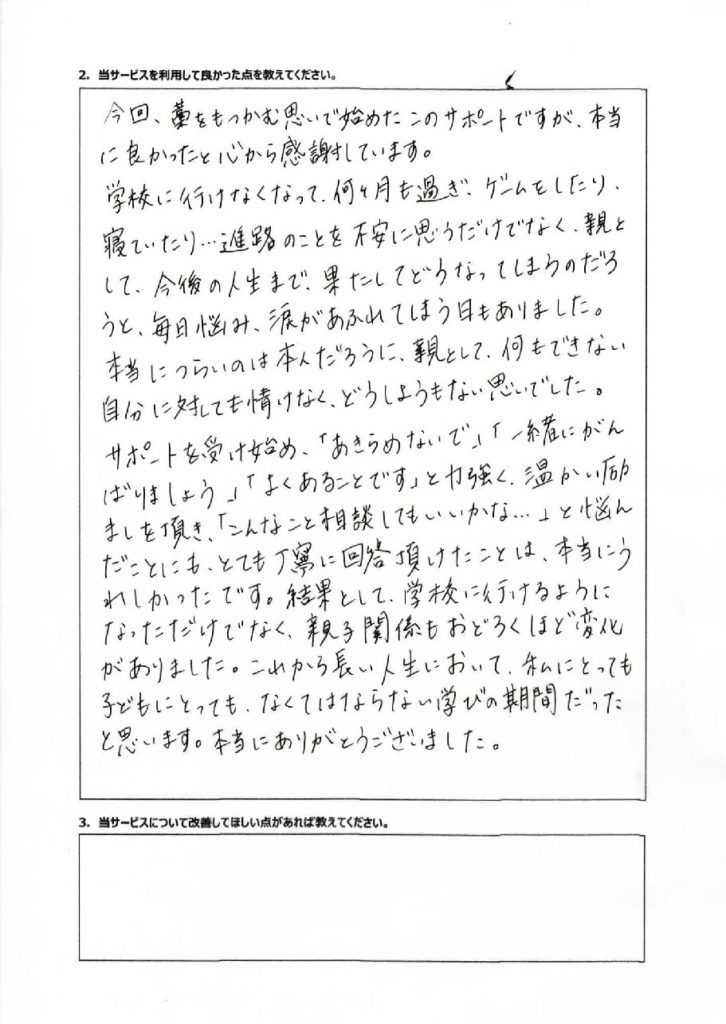 2. 当サービスを利用して良かった点を教えてください。
今回、藁をもつかむ思いで始めたこのサポートですが、本当
に良かったと心から感謝しています。
学校に行けなくなって、何ヶ月も過ぎ、ゲームをしたり、
寝ていたり…進路のことを不安に思うだけでなく、親と
して、今後の人生まで、果たしてどうなってしまうのだろ
うと、毎日悩み、涙があふれてしまう日もありました。
本当につらいのは本人だろうに、親として、何もできない
自分に対しても情けなく、どうしようもない思いでした。
サポートを受け始め、「あきらめないで」「一緒にがん
ばりましょう」「よくあることです」と力強く、温かい励
ましを頂き、「こんなこと相談してもいいかな…」と悩ん
だことにも、とても丁寧に回答頂けたことは、本当にう
れしかったです。結果として、学校に行けるように
なっただけでなく、親子関係もおどろくほど変化
がありました。これから長い人生において、私にとっても
子どもにとっても、なくてはならない学びの期間だった
と思います。本当にありがとうございました。
3. 当サービスについて改善してほしい点があれば教えてください。